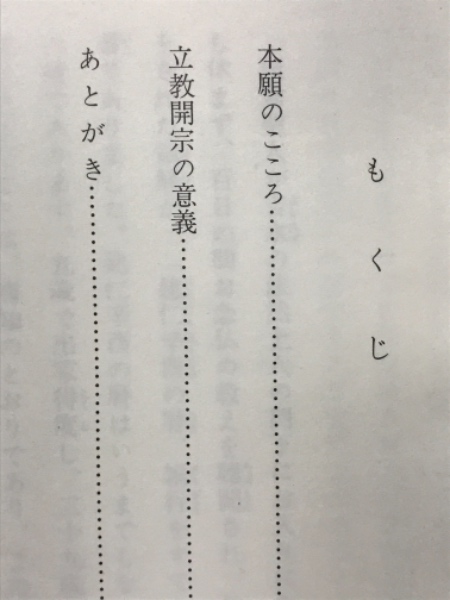 もくじ
本願のこころ……………………………………
立教開宗の意義…………………………………
あとがき…………………………………………